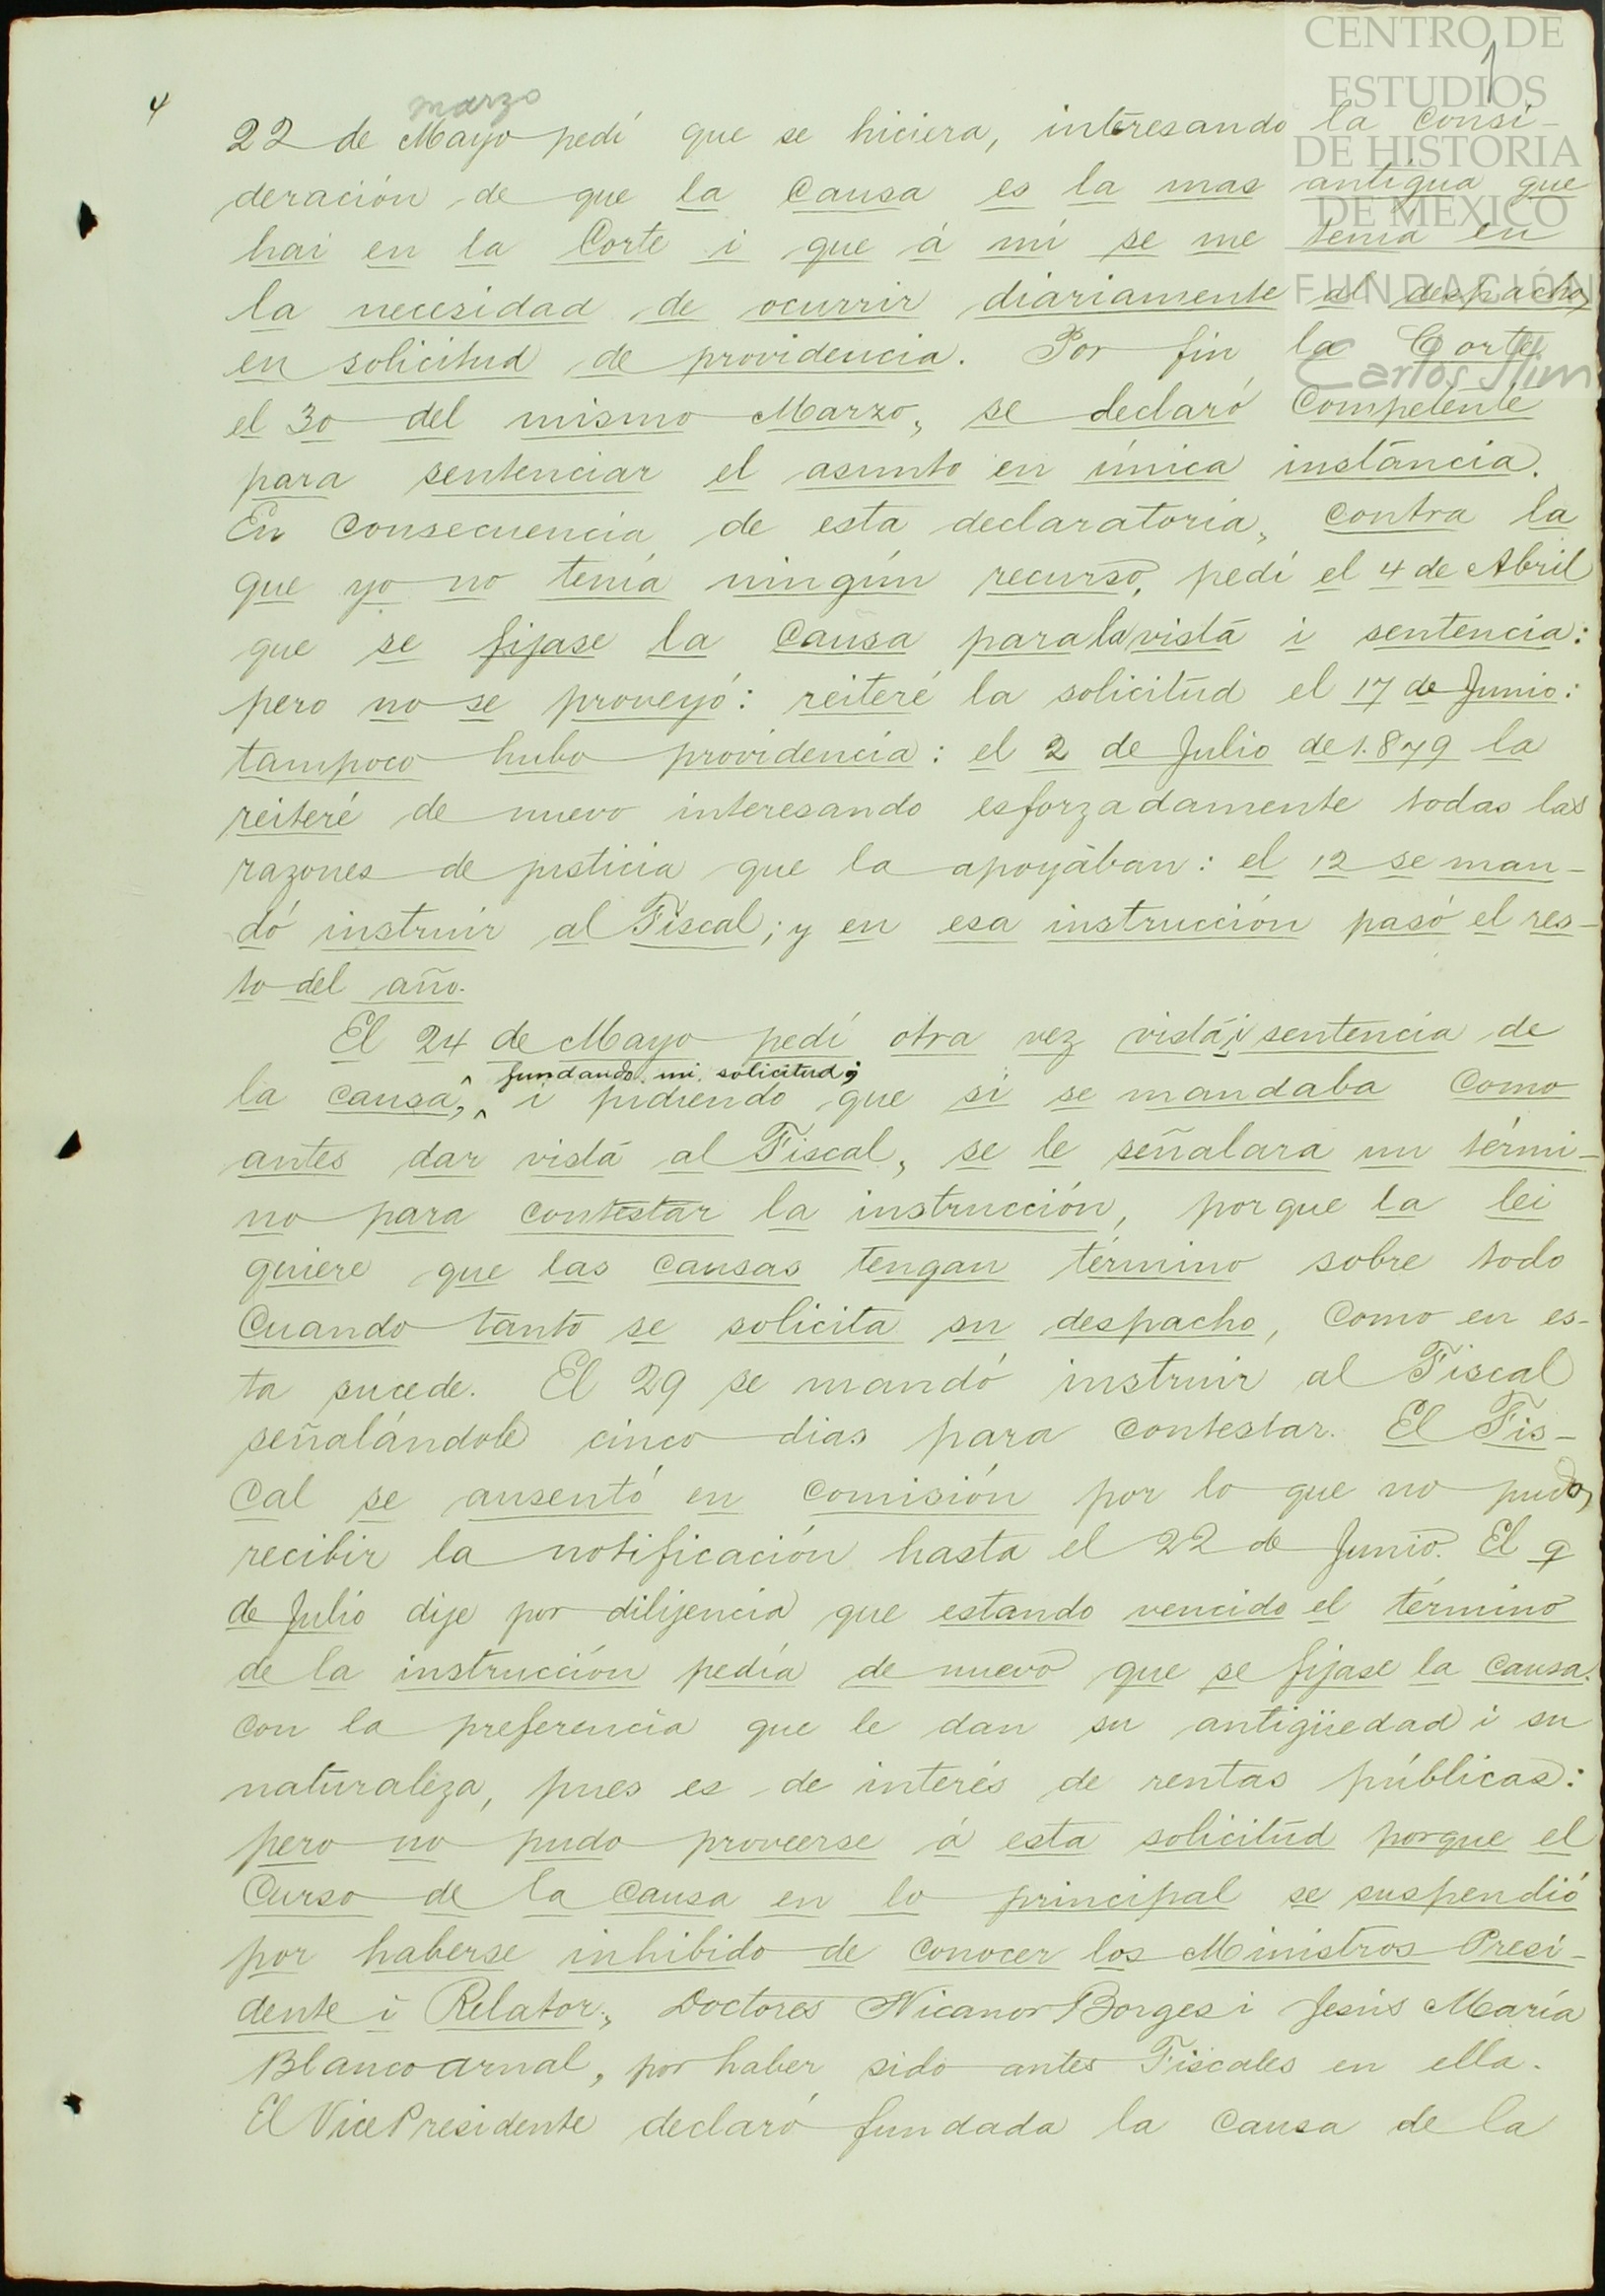 CENTRO DE
ESTUDIOS
DE HISTORIA
DE MEXICO
FUNDACIÓN
Carlos Slim
4
marzo
22 de Mayo pedí que se hiciera, interesando la consi-
deración de que la causa es la mas antigua que
hai en la Corte i que á mí se me tenía en
la necesidad de ocurrir diariamente al despacho,
en solicitud de providencia. Por fin la Corte
el 30 del mismo Marzo, se declaró competente
para sentenciar el asunto en única instancia.
En consecuencia de esta declaratoria, contra la
que yo no tenía ningún recurso, pedí el 4 de Abril
que se fijase la causa para la vista i sentencia:
pero no se proveyó: reiteré la solicitud el 17 de Junio:
tampoco hubo providencia: el 2 de Julio de 1.879 la
reiteré de nuevo interesando esforzadamente todas las
razones de justicia que la apoyában: el 12 se man-
dó instruir al Fiscal; y en esa instrucción pasó el res-
to del año.
El 24 de Mayo pedí otra vez vista i sentencia de
fundando mi solicitud;
la causa, i pidiendo que si se mandaba como
antes dar vista al Fiscal, se le señalara un térmi-
no para contestar la instrucción, porque la lei
quiere que las causas tengan término sobre todo
cuando tanto se solicita su despacho, como en es-
ta sucede. El 29 se mandó instruir al Fiscal
señalándole cinco dias para contestar. El Fis-
cal se ausentó en comisión por lo que no pudo,
recibir la notificación hasta el 22 de Junio. El 9
de Julio dije por dilijencia que estando vencido el término
de la instrucción pedía de nuevo que se fijase la causa.
con la preferencia que le dan su antigüedad i su
naturaleza, pues es de interés de rentas públicas:
pero no pudo proveerse á esta solicitud porque el
curso de la causa en lo principal se suspendió
por haberse inhibido de conocer los Ministros Presi-
dente i Relator, Doctores Nicanor Borges i Jesús María
Blanco arnal, por haber sido antes Fiscales en ella.
El VicePresidente declaró fundada la causa de la